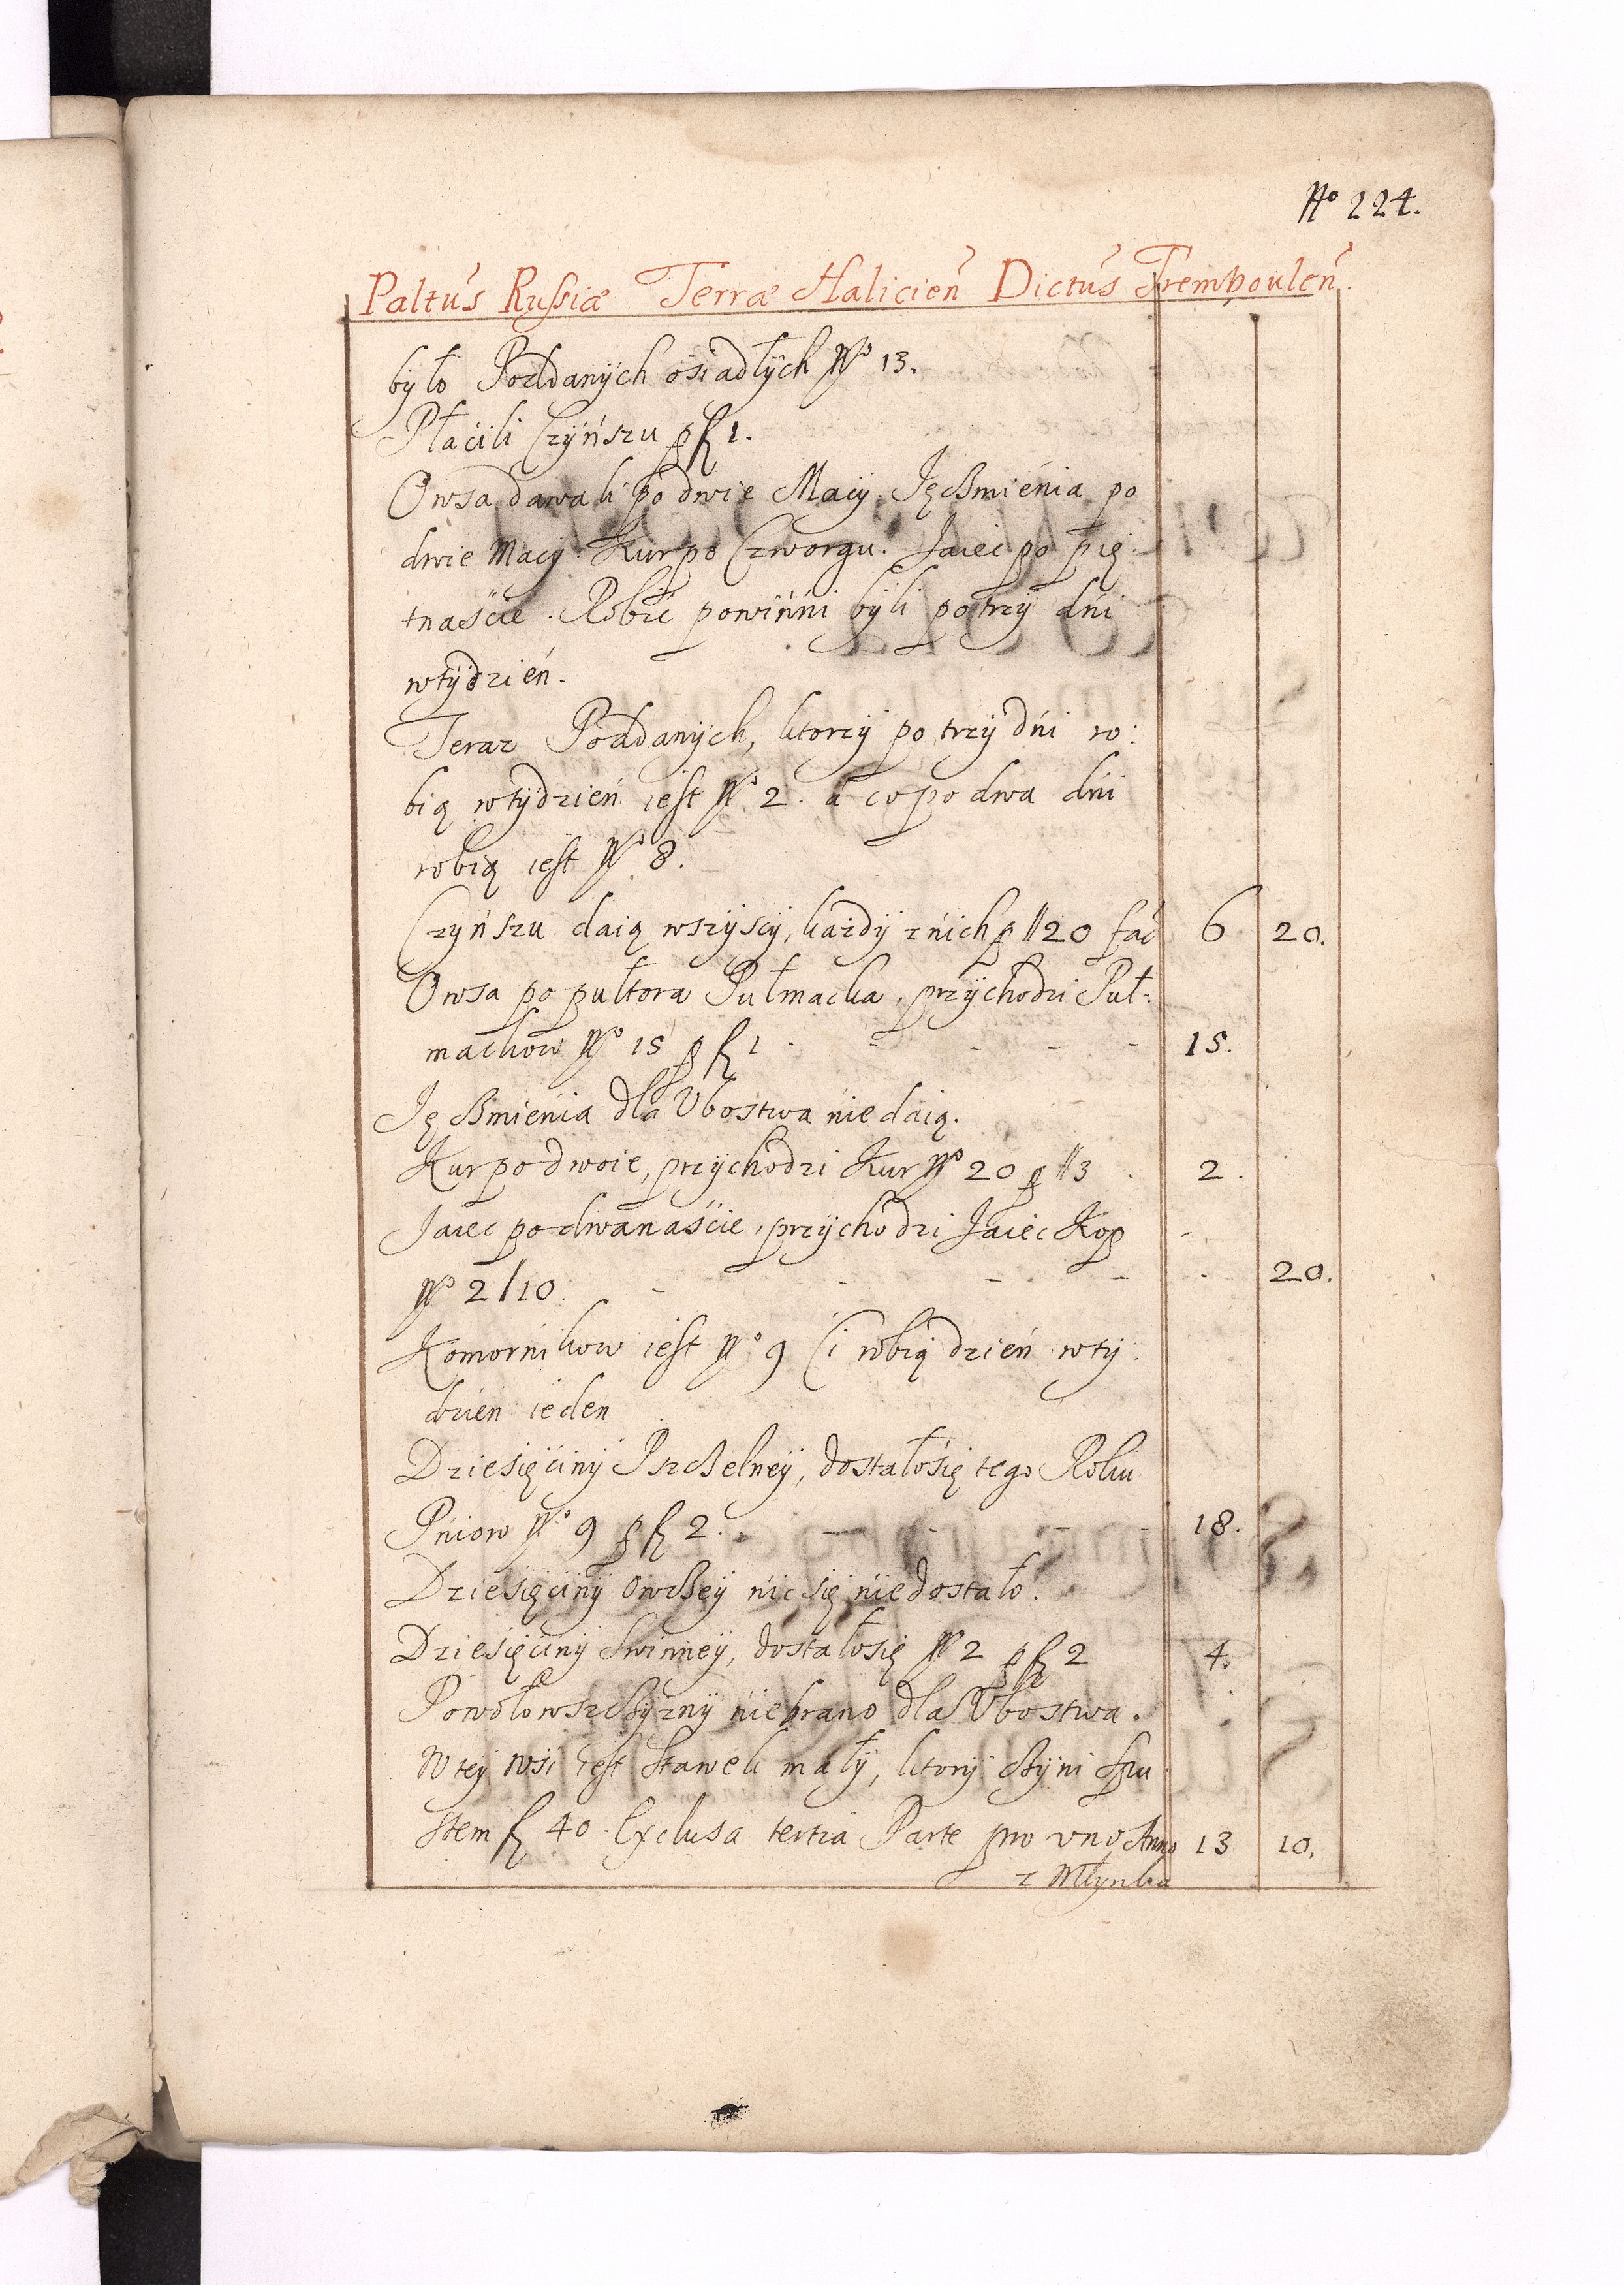 No 224.
Paltus Russiæ Terræ Halicień Dictus Tremboulen.
było Poddanych osiadłÿch No 13.
Płacili Czÿńszu p fl 1.
Owsa dawali po dwie Macÿ. Jęczmienia po
dwie Macÿ. Kur po Czworgu. Jaiec po pię
tnascie. Robić powinni bÿli po trzÿ dni
w tÿdzień.
Teraz Poddanÿch, ktorzÿ po trzÿ dni ro:
bią w tÿdzień iest No 2. a co po dwa dni
robią iest No 8.
Czÿńszu daią wszÿscÿ, każdÿ z nich p ll 20 fać 6 20.
Owsa po pułtora Pułmacka, przÿchodzi Puł:
mackow No 15 p fl 1 - - - - - 15.
Jęczmienia dla Vbostwa nie daią.
Kur po dwoie, przÿchodzi Kur No 20 p ll 3 . 2.
Jaiec po dwanascie, przÿchodzi Jaiec Kop -
No 2/10. - - - - - 20.
Komornikow iest No 9 Ci robią dzień w tÿ:
dzien ieden
Dziesięcinÿ Pszczelneÿ, dostało się tego Roku
Pniow No 9 p fl 2. - - - - 18.
Dziesięcinÿ Owczeÿ nic się nie dostało.
Dziesięcinÿ Swinneÿ, dostało się No 2 p fl 2 4.
Powołowszczÿznÿ nie brano dla Vbostwa.
W teÿ wsi iest Stawek małÿ, ktorÿ czÿni Spu
stem fl 40. Exclusa tertia Parte pro vno Anno 13 10.
z Młynka